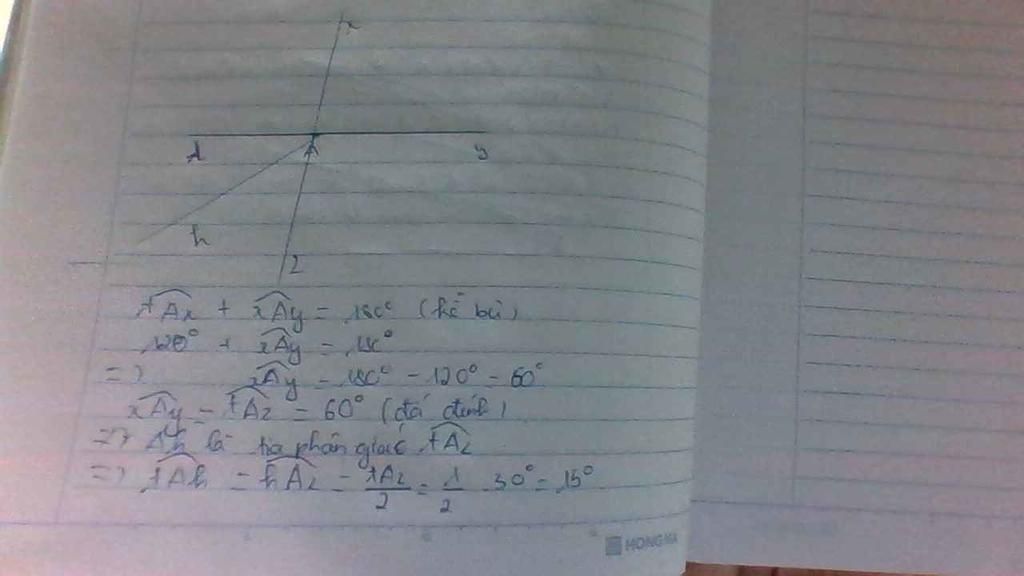 x
t
A
y
h
z
tAx + xAy = 180° (kề bù)
120° + xAy = 180°
=> xAy = 180° - 120° = 60°
xAy = tAz = 60° (đối đỉnh)
=> Ah là tia phân giác tAz
=> tAh = hAz = tAz/2 = 1/2 . 30° = 15°
HONG HA